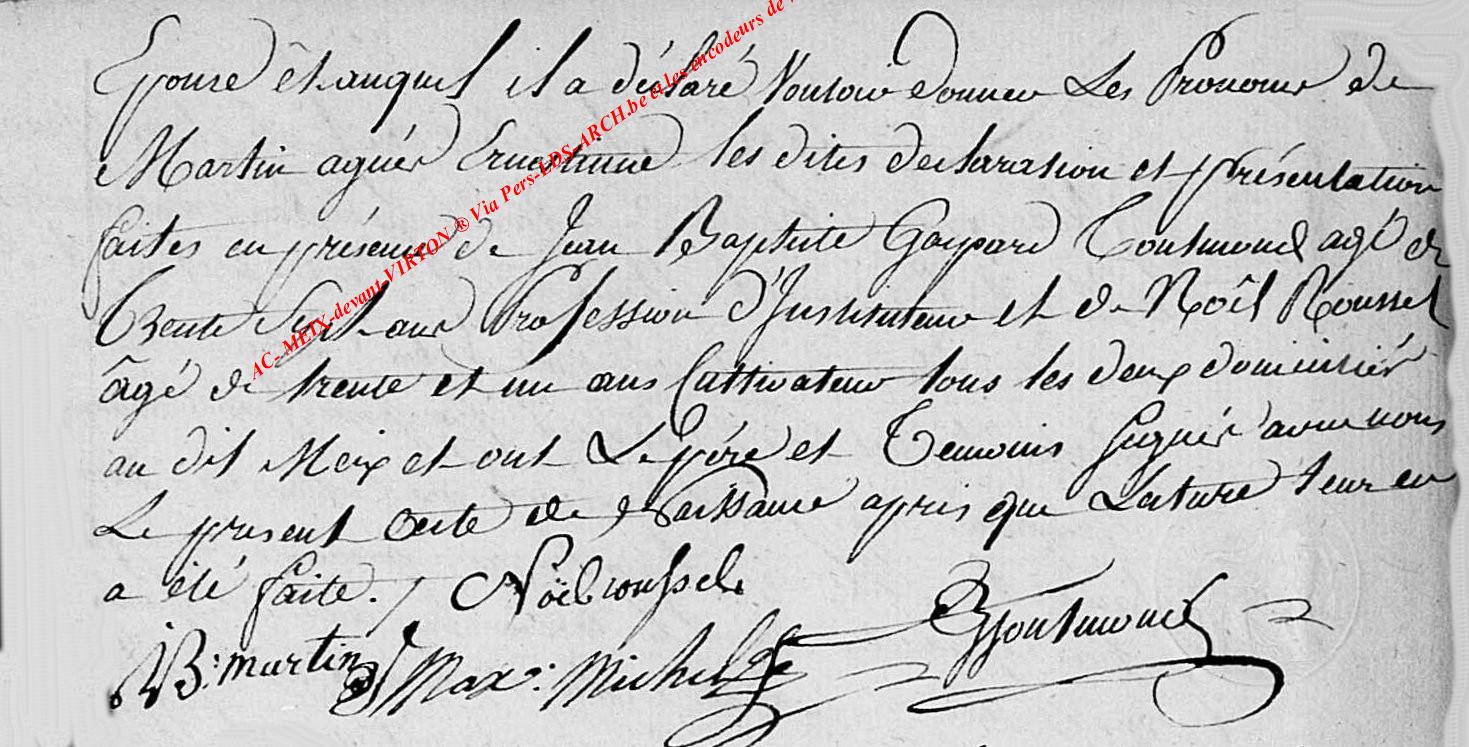 Epouse et auquel il a déclaré Vouloir donner Les Prenoms de
Martin agnès Ernestinne les dites declaration et présentation
faites en présence de Jean Baptiste Gaspard Toutmond agé de
Trente Sept ans Profession d'Instituteur et de Noël Roussel
âgé de trente et un ans Cultivateur tous les deux domiciliés
au dit Meix et ont Le père et Temoins Signés avec nous
Le present acte de Naissance apris que Lecture leur en
a été faite./ Noël rousselx
JB: martin Max: Michel Toutmond
AC- METX-devant-VIRTON ® Via Pers-LDS-ARCH.be et les encodeurs de